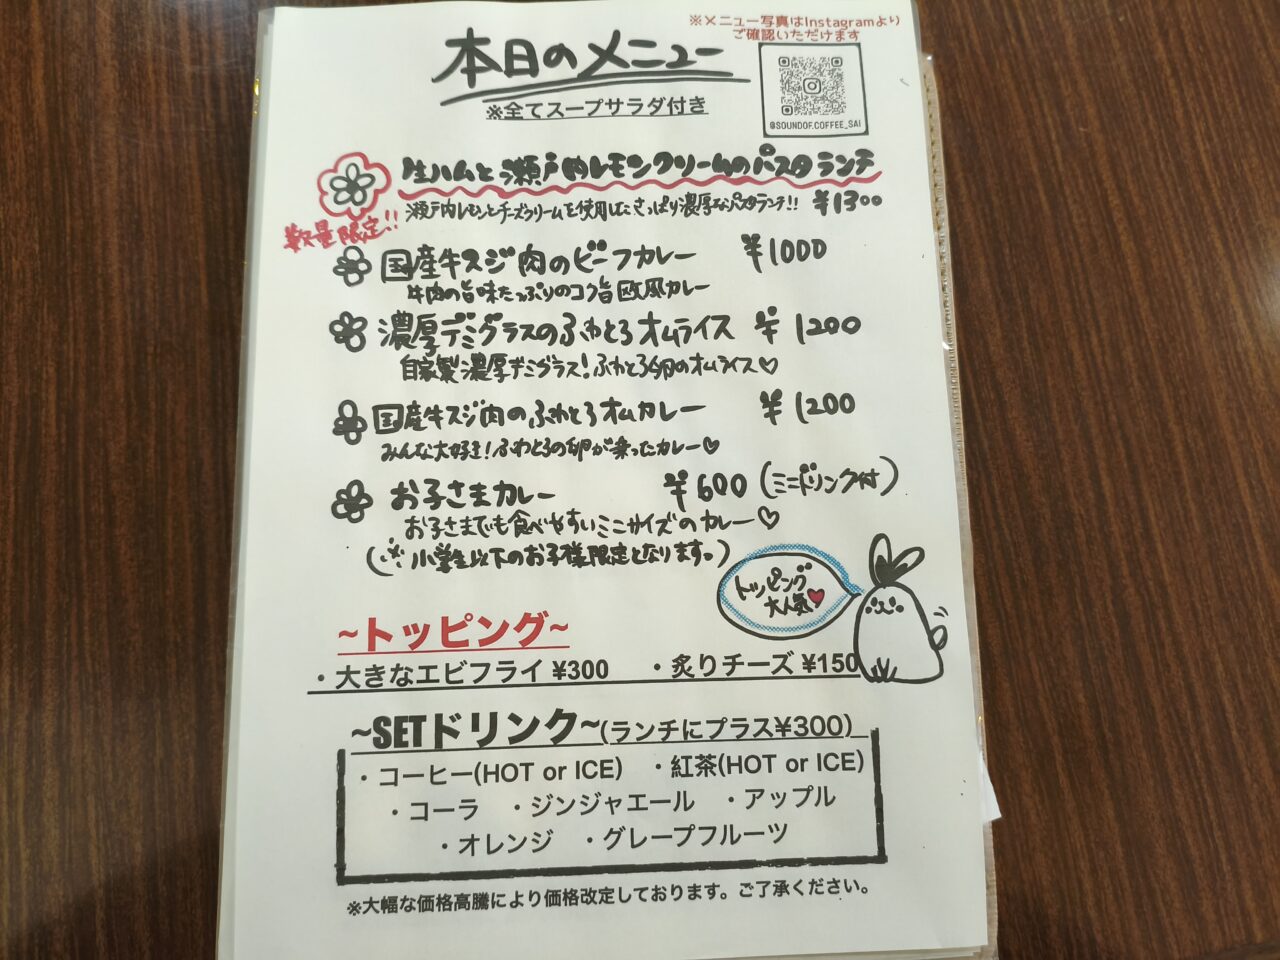 ※メニュー写真はInstagramより
ご確認いただけます
本日のメニュー
※全てスープサラダ付き
@SOUNDOF.COFFEE_SAI
生ハムと瀬戸内レモンクリームのパスタランチ
瀬戸内レモンとチーズクリームを使用したさっぱり濃厚なパスタランチ!! ¥1300
数量限定!!
国産牛スジ肉のビーフカレー ¥1000
牛肉の旨味たっぷりのコク旨欧風カレー
濃厚デミグラスのふわとろオムライス ¥1200
自家製濃厚デミグラス!ふわとろ卵のオムライス♡
国産牛スジ肉のふわとろオムカレー ¥1200
みんな大好き!ふわとろの卵が乗ったカレー♡
お子さまカレー ¥600(ミニドリンク付)
お子さまでも食べやすいミニサイズのカレー♡
(※小学生以下のお子様限定となります。)
トッピング
大人気♥
~トッピング~
・大きなエビフライ ¥300 ・炙りチーズ ¥150
~SETドリンク~(ランチにプラス¥300)
・コーヒー(HOT or ICE) ・紅茶(HOT or ICE)
・コーラ ・ジンジャエール ・アップル
・オレンジ ・グレープフルーツ
※大幅な価格高騰により価格改定しております。ご了承ください。